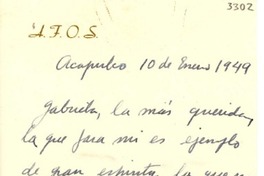 3302
Y.F.O.S.
Acapulco 10 de Enero 1949
Gabriela, la más querida,
la que para mi es ejemplo
de gran espíritu, la que